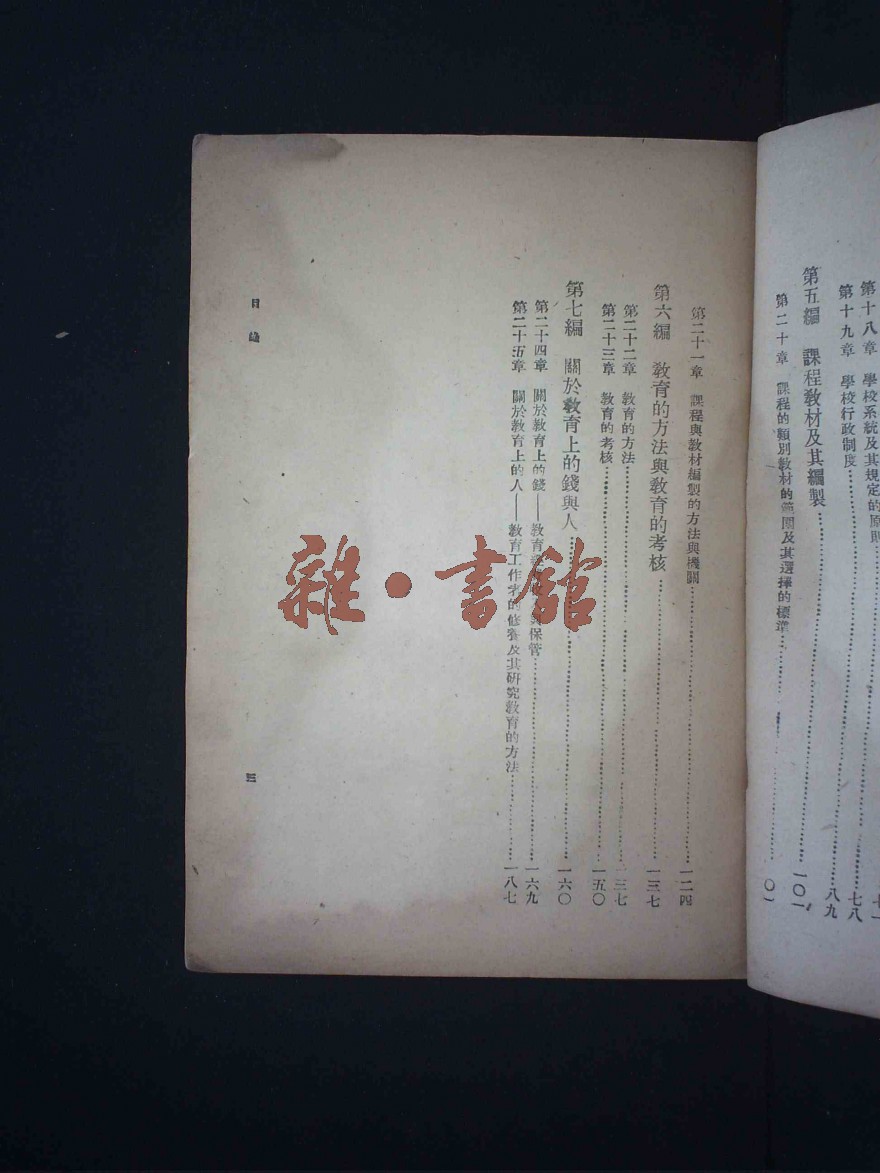 第十八章 學校系統及其規定的原則……七八
第十九章 學校行政制度……八九
第五編 課程教材及其編製……一〇一
第二十章 課程的類別教材的範圍及其選擇的標準……〇一
第二十一章 課程與教材編製的方法與機關……一二四
第六編 教育的方法與教育的考核……一三七
第二十二章 教育的方法……一三七
第二十三章 教育的考核……一五〇
第七編 關於教育上的錢與人……一六〇
第二十四章 關於教育上的錢——教育 保管……一六九
第二十五章 關於教育上的人——教育工作者的修養及其研究教育的方法……一八七
目錄
三
雜·書館